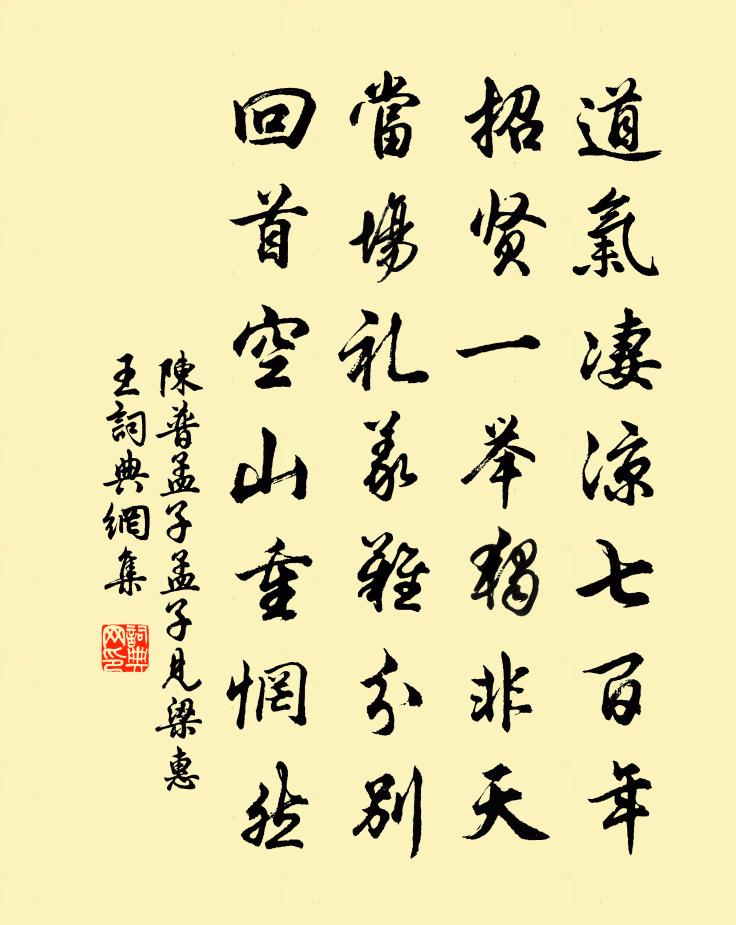 道氣凄涼七百年
招贤一举獨非天
當場礼義難分別
回首空山重惘然
陳普孟子孟子見梁惠
王詞典網集
詞典网印